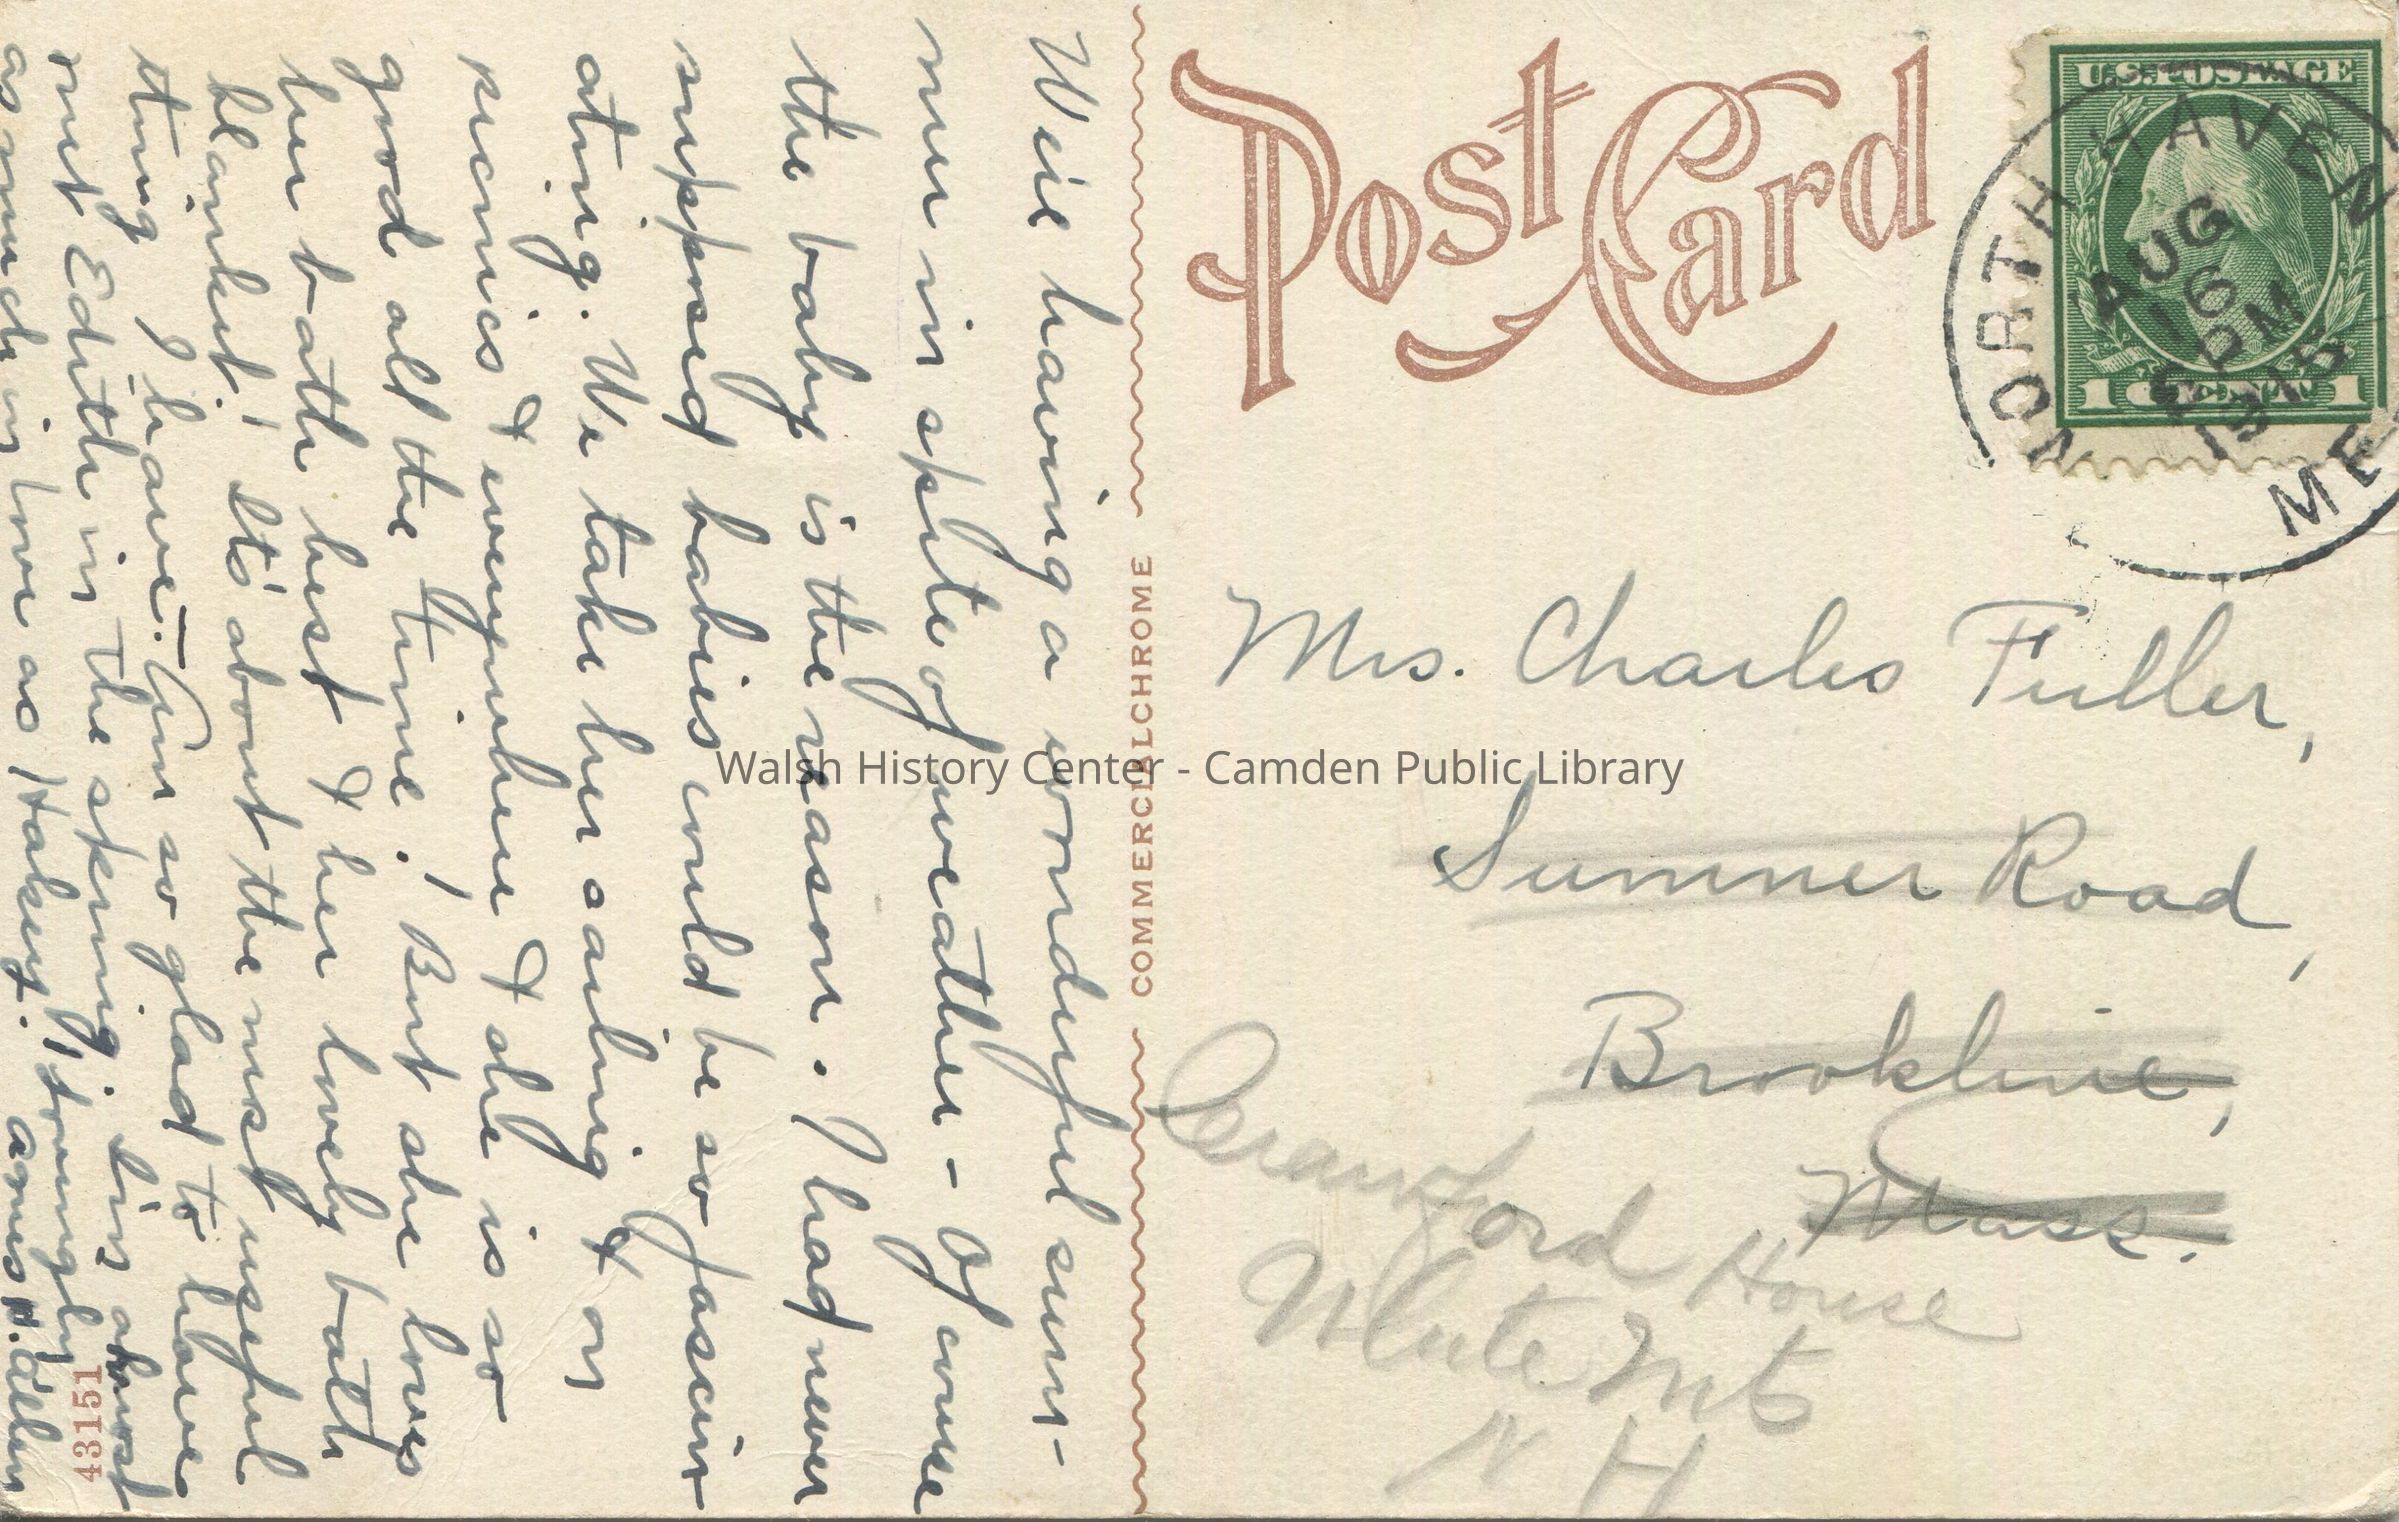 We're having a wonderful sum-
mer in spite of weather - Of course
the baby is the reason. I had never
supposed babies could be so fascin-
ating. We take her sailing & on
picnics & everywhere & she is so
good all the time! But she loves
her bath best & her lovely bath
blanket! It's about the most useful
thing I have. - Am so glad to have
met Edith in the spring. I'm almost
as much in love as Hakey.
43151
Post Card
COMMERCIALCHROME
U.S. POSTAGE
1 CENT 1
NORTH HAVEN
AUG
16
PM
1915
ME
Mrs. Charles Fuller,
Summer Road,
Brookline,
Mass.
Crawford House
White Mts
N H
Walsh History Center - Camden Public Library